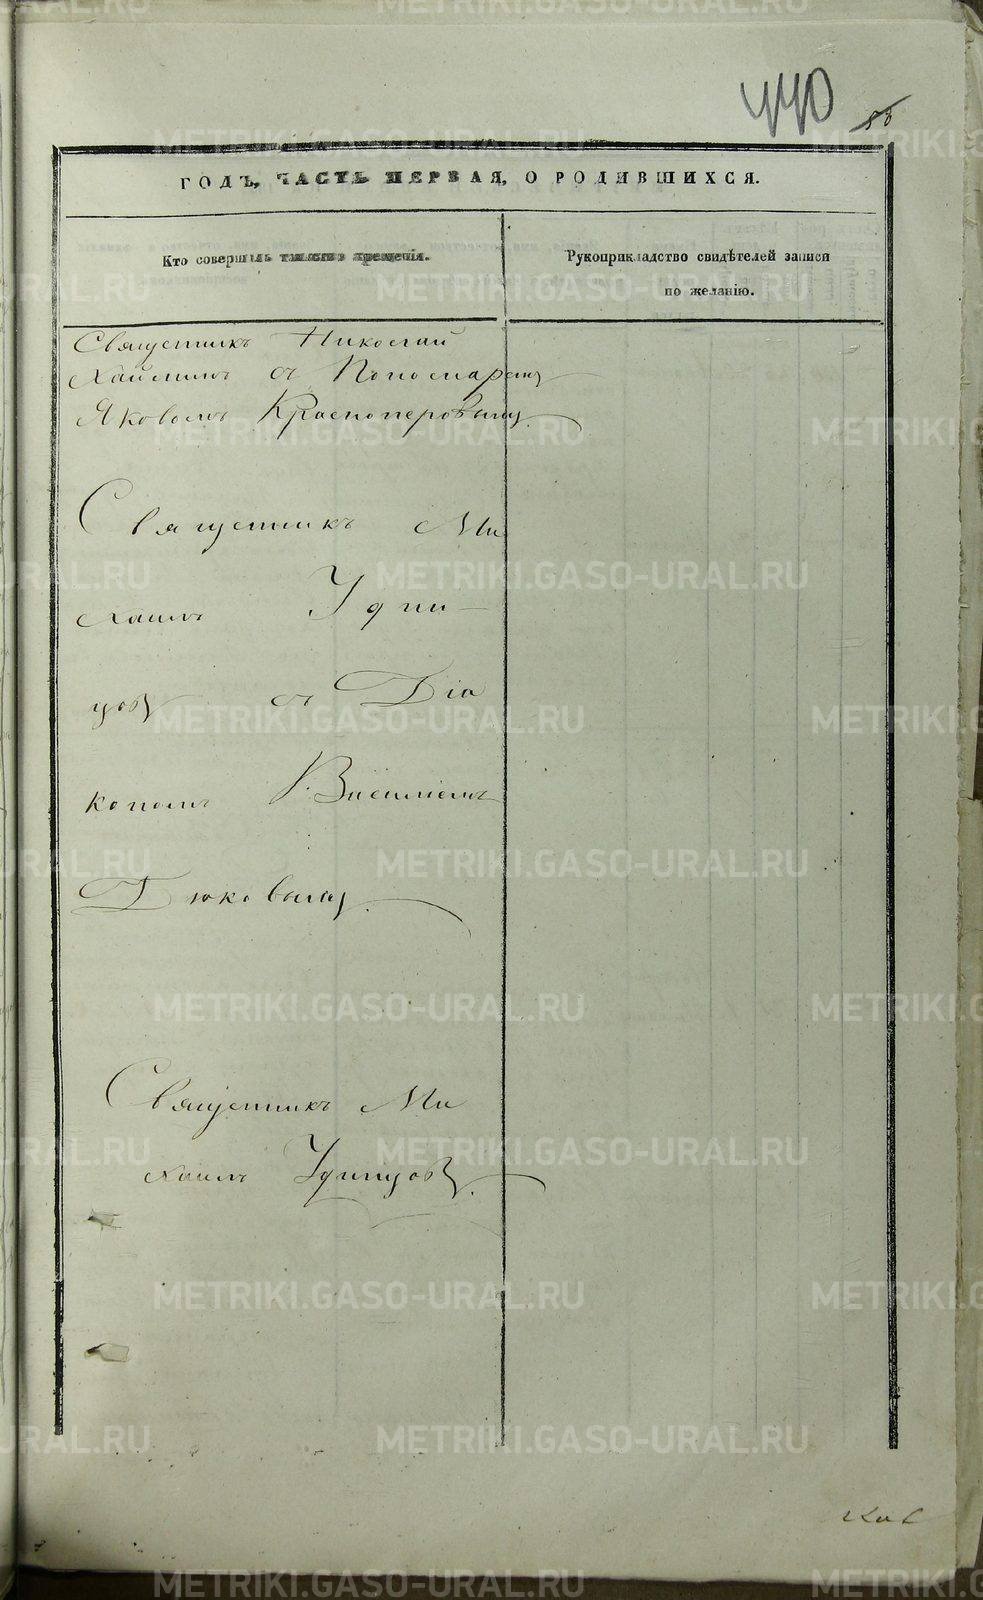 440
56
ГОДЪ, ЧАСТЬ ПЕРВАЯ, О РОДИВШИХСЯ.
Кто совершилъ таинство крещенія.
Рукоприкладство свидѣтелей записи
по желанію.
Священникъ Николай
съ Пономаремъ
Яковомъ Красноперовымъ.
Священникъ Ми
хаилъ Удин
цовъ съ Діа
кономъ Василіемъ
Дюковымъ.
Священникъ Ми
хаилъ Удинцовъ.
METRIKI.GASO-URAL.RU